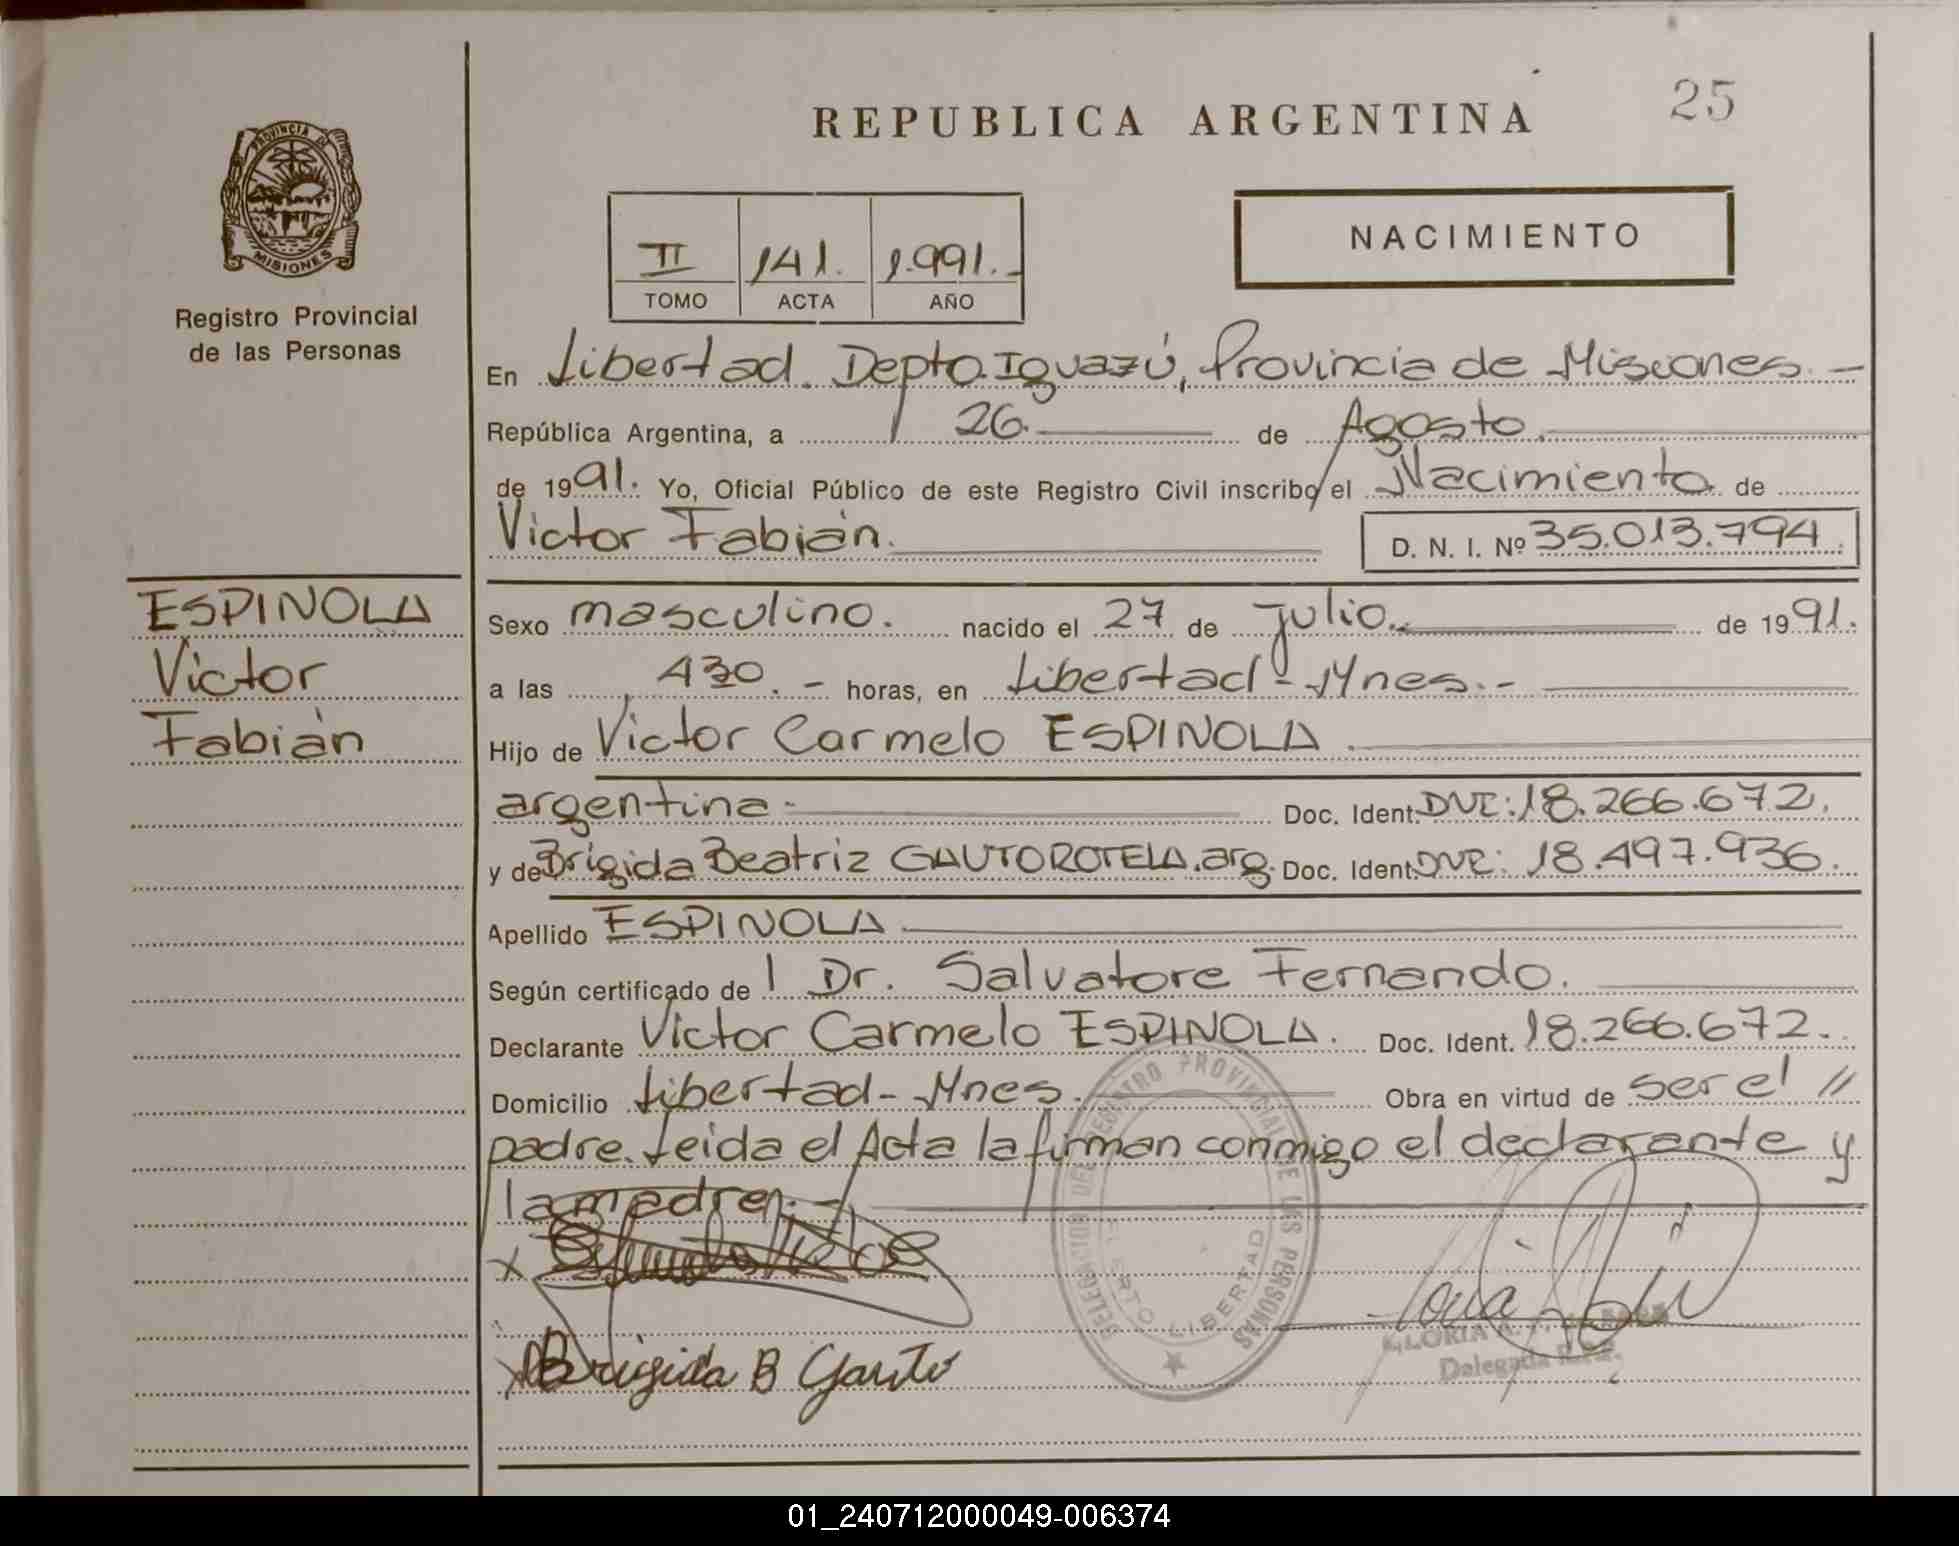 25
REPUBLICA ARGENTINA
PROVINCIA DE
MISIONES
Registro Provincial
de las Personas
II 141. 1.991.-
TOMO ACTA AÑO
NACIMIENTO
En Libertad. Depto. Iguazú, Provincia de Misiones.-
República Argentina, a 26. de Agosto.
de 1991. Yo, Oficial Público de este Registro Civil inscribo el Nacimiento de
Victor Fabián. D. N. I. Nº 35.013.794.
ESPINOLA
Victor
Fabián
Sexo masculino. nacido el 27 de julio. de 1991.
a las 430.- horas, en Libertad-Mnes.-
Hijo de Victor Carmelo ESPINOLA.
argentina- Doc. Ident. DNI: 18.266.672.
y de Brigida Beatriz GAUTO ROTELA. arg. Doc. Ident. DNI: 18.497.936.
Apellido ESPINOLA
Según certificado de l Dr. Salvatore Fernando.
Declarante Victor Carmelo ESPINOLA. Doc. Ident. 18.266.672.
Domicilio Libertad-Mnes. Obra en virtud de ser el //
padre. Leida el Acta la firman conmigo el declarante y
la madre.-
x
x Brigida B Gauto
DELEGACION DEL REGISTRO PROVINCIAL DE LAS PERSONAS
LIBERTAD
GLORIA A.
Delegada
01_240712000049-006374